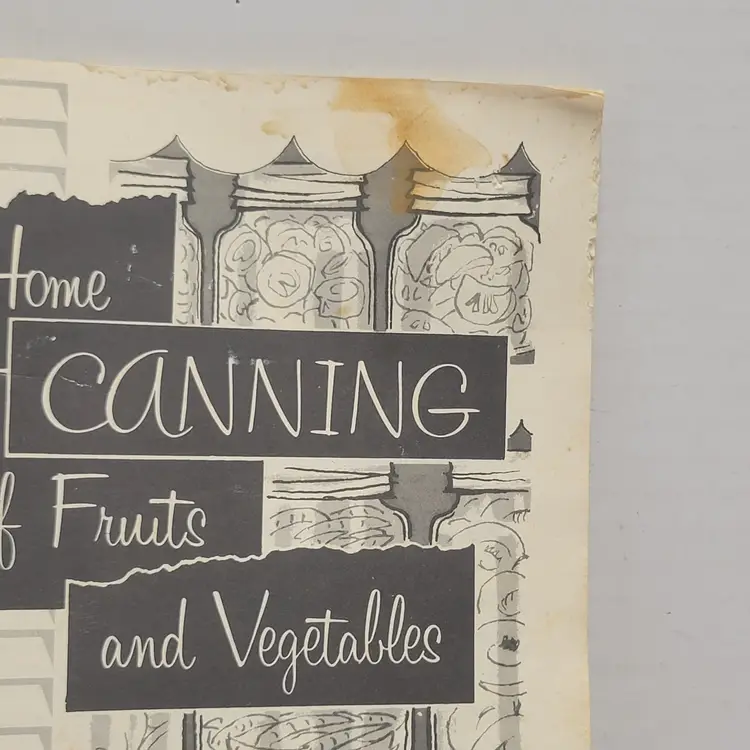 Home
CANNING
of Fruits
and Vegetables